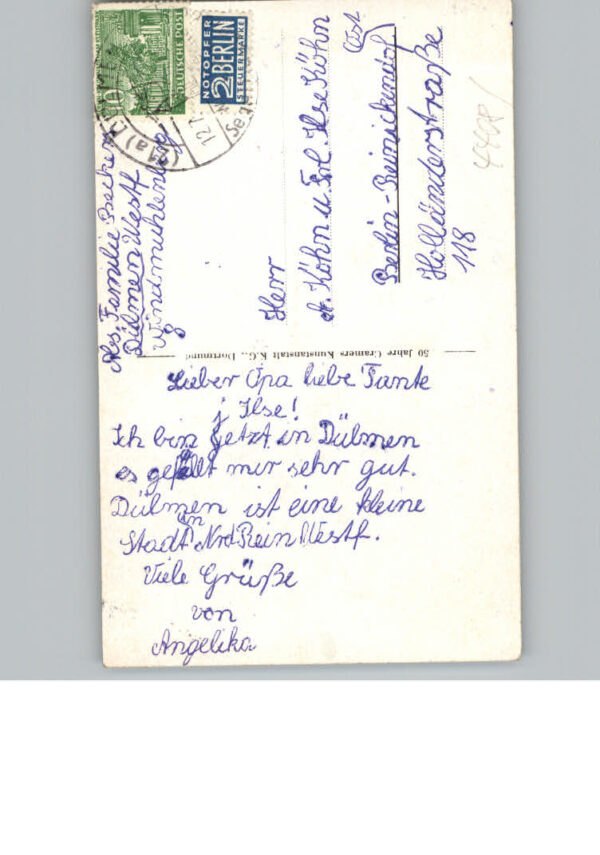 10
DEUTSCHE POST
NOTOPFER
2 BERLIN
STEUERMARKE
(21a)
12.7
Abs. Familie Becker
Dülmen Westf
Windmühlenweg
Herr
A. Köhn u. Frl. Ilse Köhn
Berlin-Reinickendorf
West
Holländerstraße
118
50 Jahre Cramers Kunstanstalt K.G., Dortmund
Lieber Opa liebe Tante
Ilse!
Ich bin jetzt in Dülmen
es gefällt mir sehr gut.
Dülmen ist eine kleine
Stadt in Nrd Rein Westf.
Viele Grüße
von
Angelika